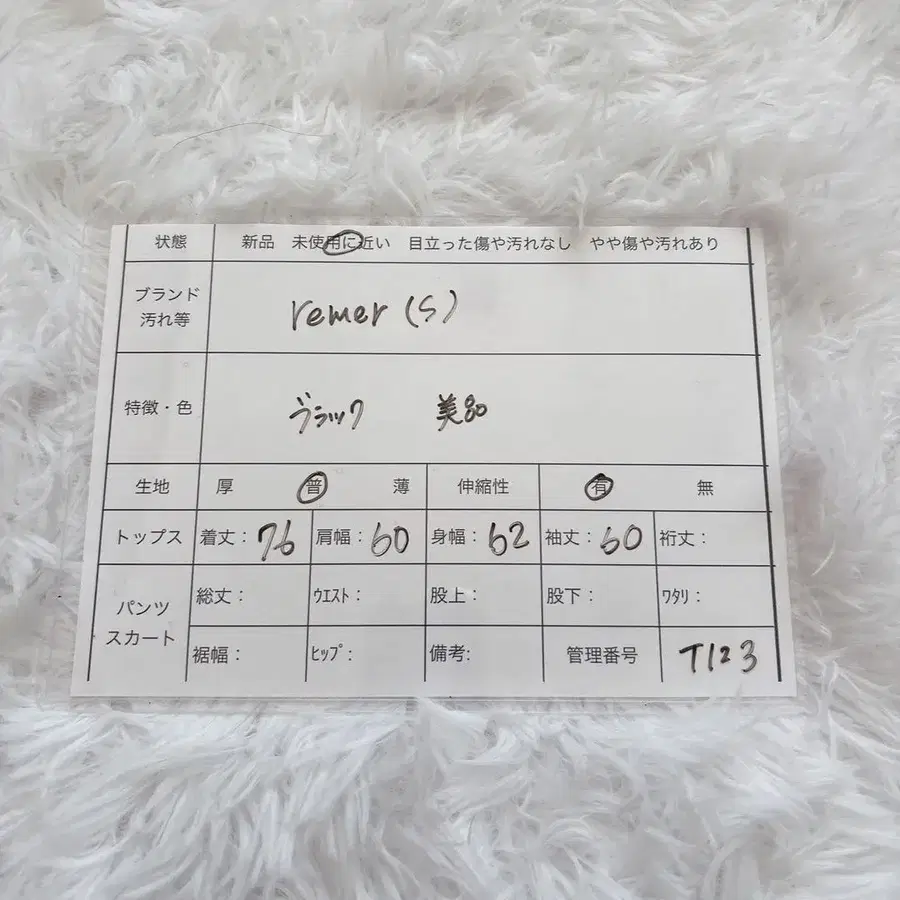 状態 新品 未使用に近い 目立った傷や汚れなし やや傷や汚れあり
ブランド
汚れ等
remer (S)
特徴・色 ブラック 美品
生地 厚 普 薄 伸縮性 有 無
トップス 着丈：76 肩幅：60 身幅：62 袖丈：60 裄丈：
パンツ
スカート
総丈： ｳｴｽﾄ： 股上： 股下： ﾜﾀﾘ：
裾幅： ﾋｯﾌﾟ： 備考: 管理番号 T123